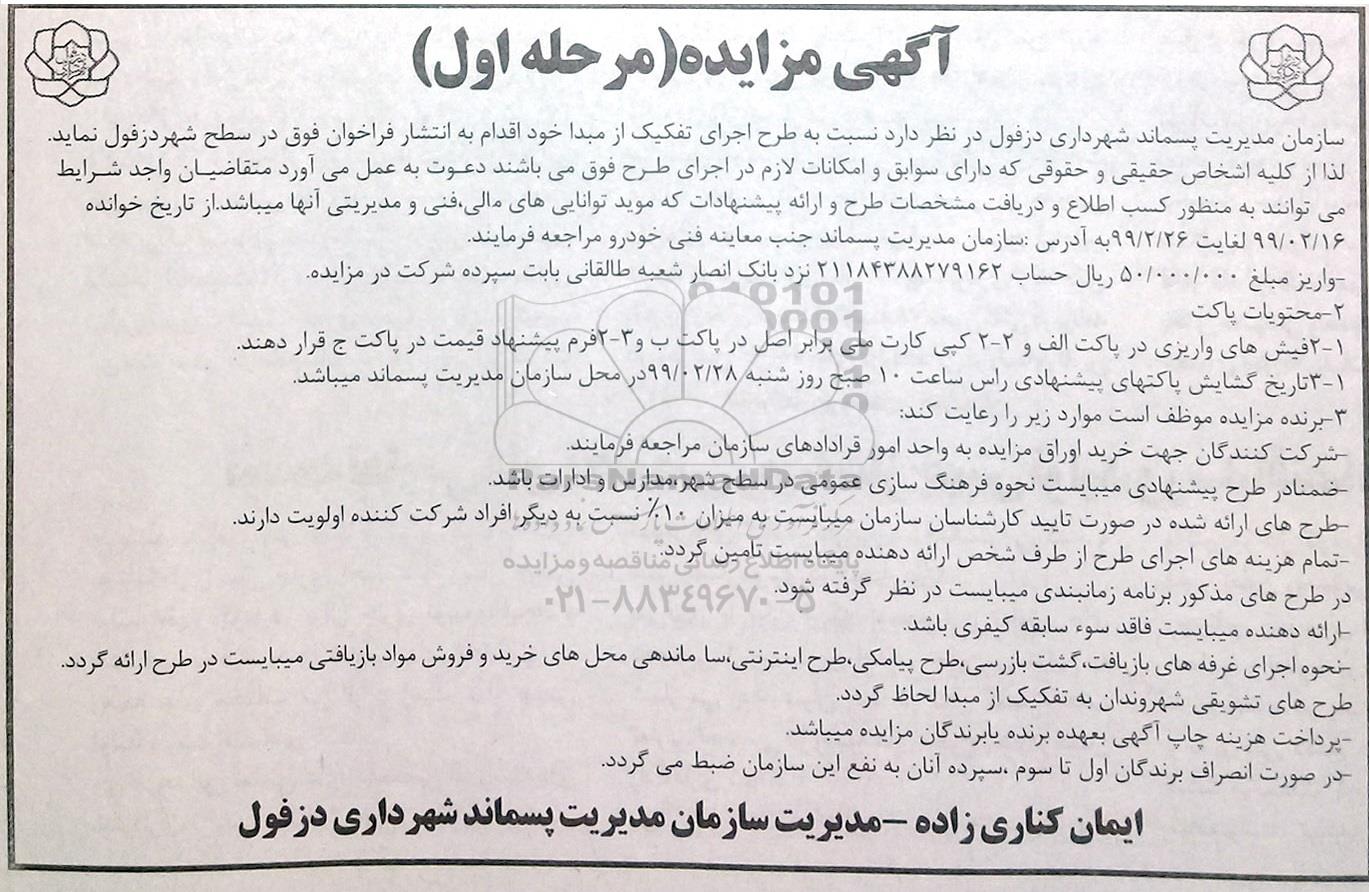 آگهی مزایده(مرحله اول)
سازمان مدیریت پسماند شهرداری دزفول در نظر دارد نسبت به طرح اجرای تفکیک از مبدا خود اقدام به انتشار فراخوان فوق در سطح شهردزفول نماید.
لذا از کلیه اشخاص حقیقی و حقوقی که دارای سوابق و امکانات لازم در اجرای طرح فوق می باشند دعوت به عمل می آورد متقاضیان واجد شرایط
می توانند به منظور کسب اطلاع و دریافت مشخصات طرح و ارائه پیشنهادات که موید توانایی های مالی،فنی و مدیریتی آنها میباشد.از تاریخ خوانده
۹۹/۰۲/۱۶ لغایت ۹۹/۲/۲۶به آدرس :سازمان مدیریت پسماند جنب معاینه فنی خودرو مراجعه فرمایند.
-واریز مبلغ ۵۰/۰۰۰/۰۰۰ ریال حساب ۲۱۱۸۴۳۸۸۲۷۹۱۶۲ نزد بانک انصار شعبه طالقانی بابت سپرده شرکت در مزایده.
۲-محتویات پاکت
۲-۱فیش های واریزی در پاکت الف و ۲-۲ کپی کارت ملی برابر اصل در پاکت ب و۳-۲فرم پیشنهاد قیمت در پاکت ج قرار دهند.
۳-۱تاریخ گشایش پاکتهای پیشنهادی راس ساعت ۱۰ صبح روز شنبه ۹۹/۰۲/۲۸در محل سازمان مدیریت پسماند میباشد.
۳-برنده مزایده موظف است موارد زیر را رعایت کند:
-شرکت کنندگان جهت خرید اوراق مزایده به واحد امور قرادادهای سازمان مراجعه فرمایند.
-ضمنادر طرح پیشنهادی میبایست نحوه فرهنگ سازی عمومی در سطح شهر،مدارس و ادارات باشد.
-طرح های ارائه شده در صورت تایید کارشناسان سازمان میبایست به میزان ۱۰٪ نسبت به دیگر افراد شرکت کننده اولویت دارند.
-تمام هزینه های اجرای طرح از طرف شخص ارائه دهنده میبایست تامین گردد.
در طرح های مذکور برنامه زمانبندی میبایست در نظر گرفته شود.
-ارائه دهنده میبایست فاقد سوء سابقه کیفری باشد.
-نحوه اجرای غرفه های بازیافت،گشت بازرسی،طرح پیامکی،طرح اینترنتی،سا ماندهی محل های خرید و فروش مواد بازیافتی میبایست در طرح ارائه گردد.
طرح های تشویقی شهروندان به تفکیک از مبدا لحاظ گردد.
-پرداخت هزینه چاپ آگهی بعهده برنده یابرندگان مزایده میباشد.
-در صورت انصراف برندگان اول تا سوم ،سپرده آنان به نفع این سازمان ضبط می گردد.
ایمان کناری زاده -مدیریت سازمان مدیریت پسماند شهرداری دزفول
پایگاه اطلاع رسانی مناقصه و مزایده
۰۲۱-۸۸۳۴۹۶۷۰-۵